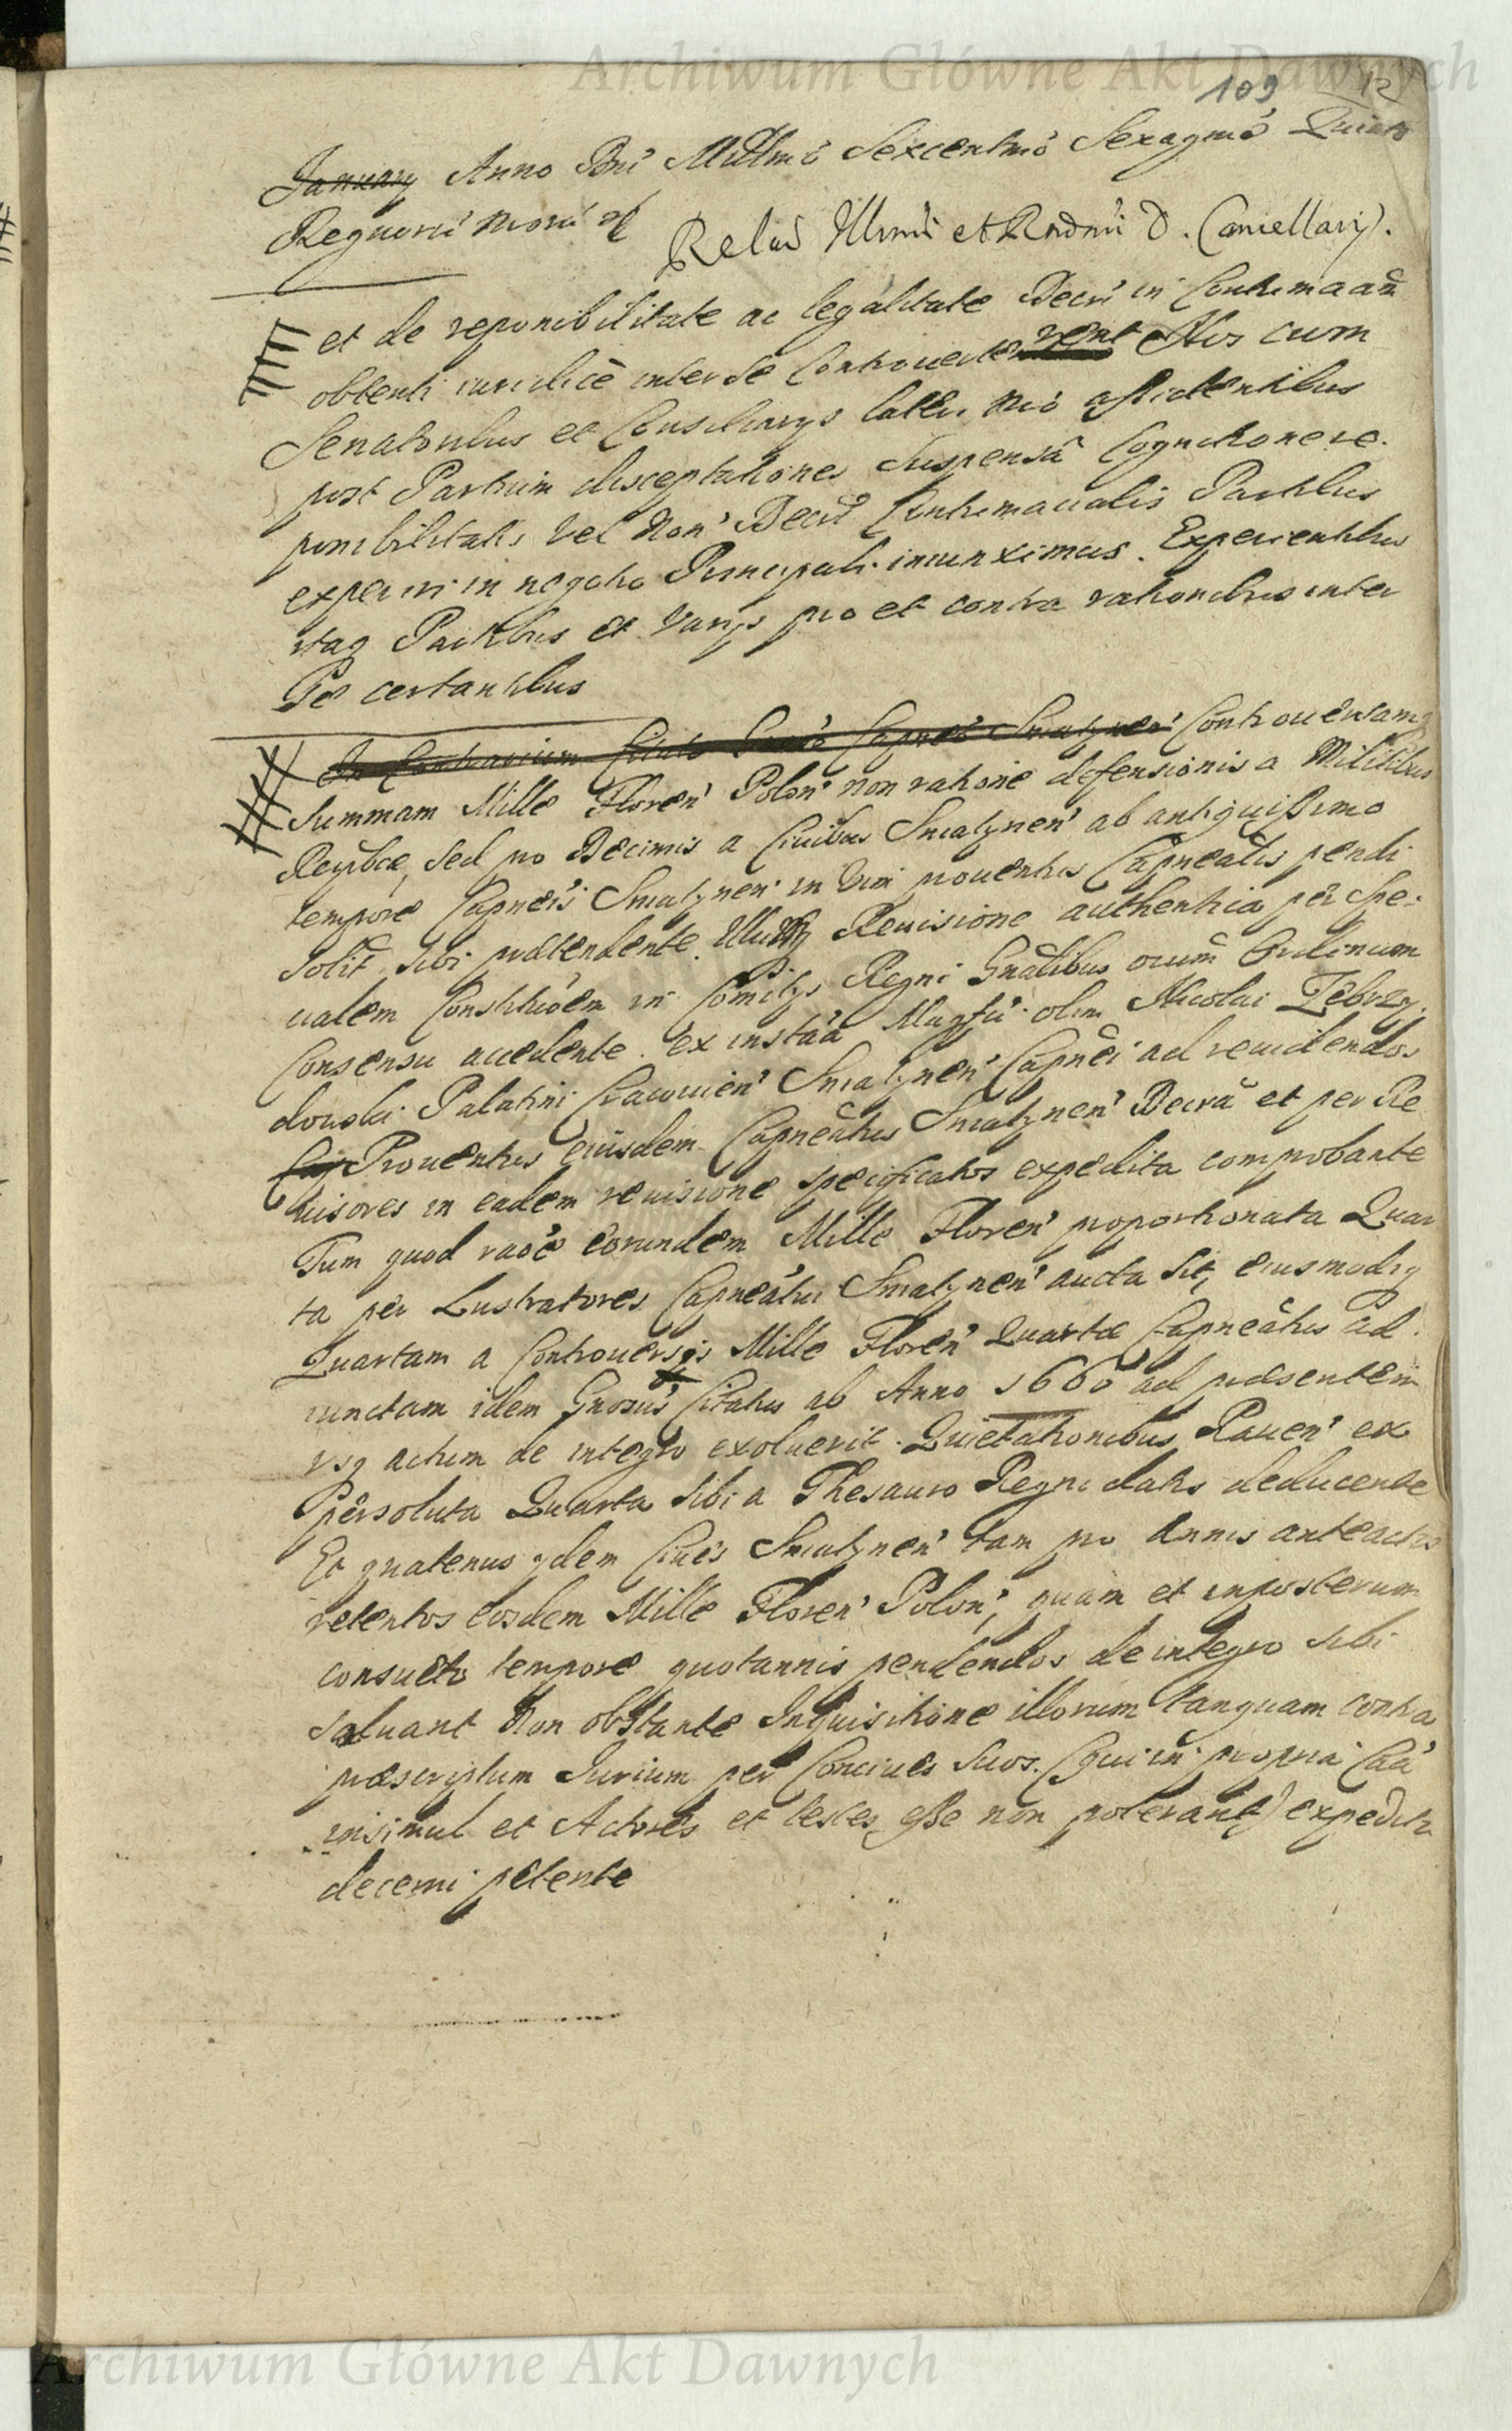 Archiwum Główne Akt Dawnych
109 12
January Anno Dni Millmo Sexcentmo Sexagmo Quinto
Regnorū nrorū
Relao Illmi et Rndmi D. Cancellarij.
et de reponibilitate ac legalitate Decrī in Contumaām
obtenti iuridicè inter se Controverterent Nos cum
Senatoribus et Consiliarys lateri nrō assidentibus
post Partium disceptationes suspensâ Cognitione re-
ponibilitatis vel non Decrī Contumacialis Partibus
experiri in negotio Principali iniunximus. Experientibus
itaq Partibus et varys pro et contra rationibus inter
se certantibus
In Contrarium Citato Capneo Sniatynen' Controversamq
Summam Mille Floren' Polon' non ratione defensionis a Militibus
Reipbcæ, sed pro Decimis a Civibus Sniatynen' ab antiquissimo
tempore Capneis Sniatynen' in vim proventus Capnealis pendi
solit sibi prætendente. Revisione authentica per spe-
cialem Constitutoem in Comitys Regni Gnalibus oium Ordinum
Consensu accedente. ex instā Magfci olim Nicolai Zebrzy
dowski Palatini Cracovien' Sniatynen' Capnei ad revidendos
Proventus eiusdem Capneatus Sniatynen' Decrā et per Re
visores in eadem revisione specificatos expedita comprobante
Tum quod raoe eorundem Mille Floren' proportionata Quar
ta per Lustratores Capneatus Sniatynen' aucta sit, eiusmodiq
Quartam a Controversis Mille Floren' Quartæ Capneatus ad
iunctam idem Gnosus Citatus ab Anno 1660 ad præsentem
vsq actum de integro exolverit. Quietationibus Raven' ex
persoluta Quarta sibi a Thesauro Regni datis deducente
Et quatenus ydem Cives Sniatynen' tam pro Annis anteactis
retentos eosdem Mille Floren' Polon', quam et inposterum
consueto tempore quotannis pendendos de integro sibi
solvant Non obstante Inquisitione illorum tanquam contra
præscriptum Iurium per Concives suos (qui in propria Caā
insimul et Actores et testes esse non poterant) expedita
decerni petente
Archiwum Główne Akt Dawnych